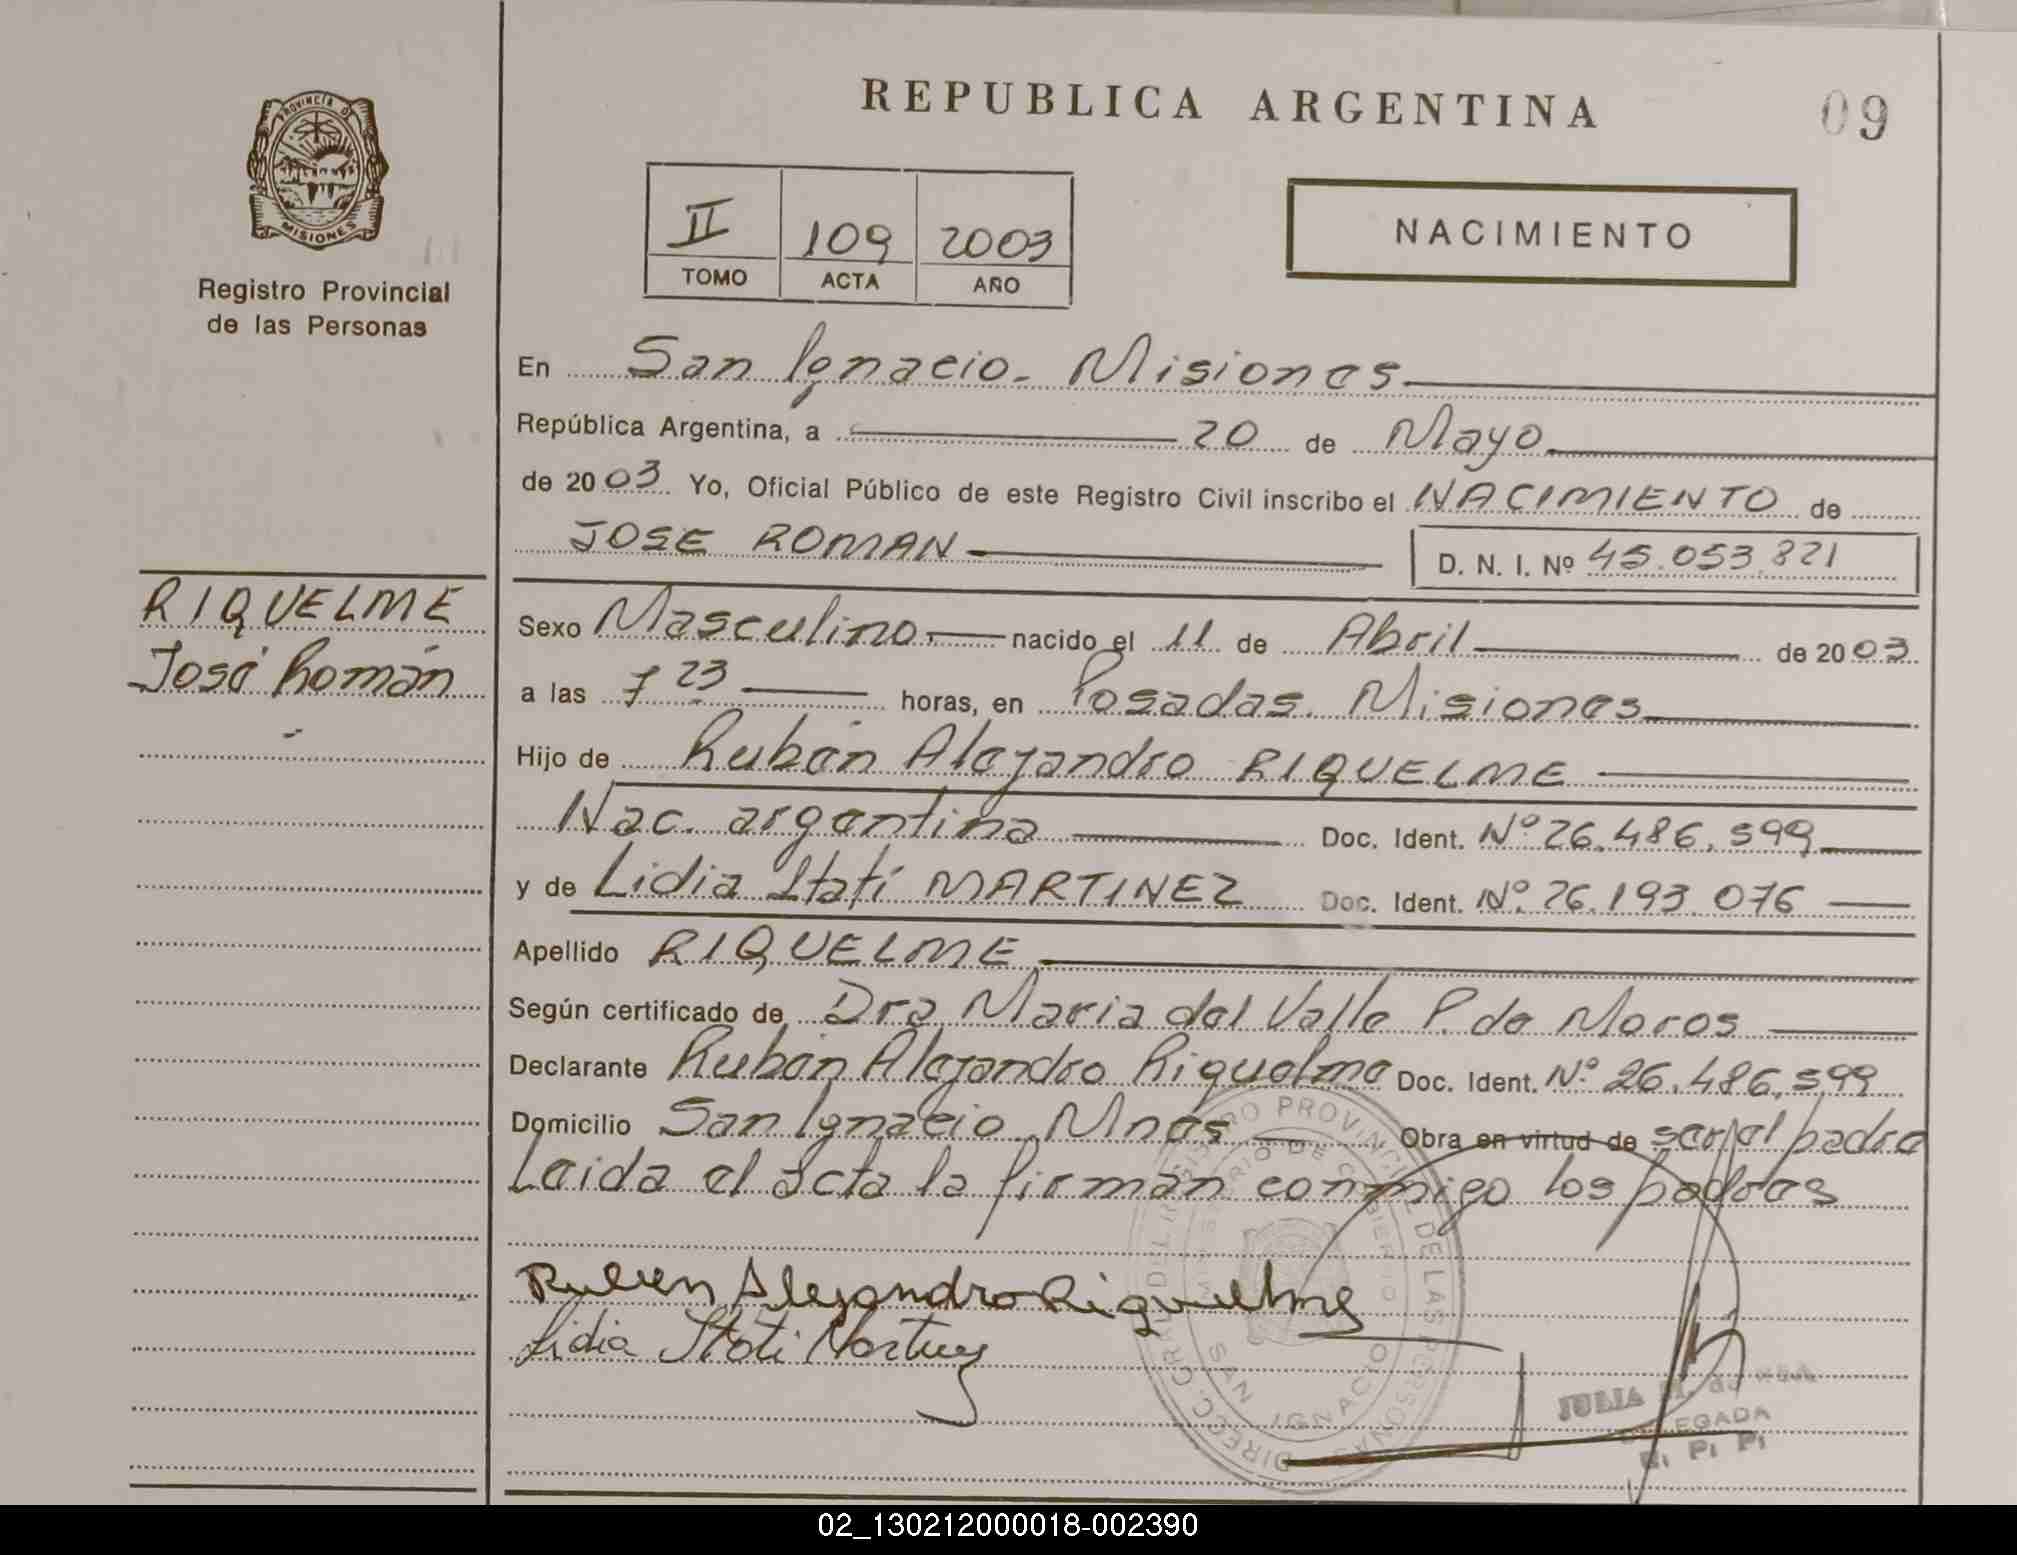 REPUBLICA ARGENTINA
09
PROVINCIA DE
MISIONES
Registro Provincial
de las Personas
II 109 2003
TOMO ACTA AÑO
NACIMIENTO
En San Ignacio. Misiones
República Argentina, a 20 de Mayo
de 2003 Yo, Oficial Público de este Registro Civil inscribo el NACIMIENTO de
JOSE ROMAN D. N. I. Nº 45.053.821
RIQUELME
José Román
Sexo Masculino nacido el 11 de Abril de 2003
a las 7 23 horas, en Posadas. Misiones
Hijo de Rubén Alejandro RIQUELME
Nac. argentina Doc. Ident. Nº 26.486.599
y de Lidia Itatí MARTINEZ Doc. Ident. Nº. 26.193.076
Apellido RIQUELME
Según certificado de Dra María del Valle P. de Moros
Declarante Rubén Alejandro Riquelme Doc. Ident. Nº 26.486.599
Domicilio San Ignacio Mnes Obra en virtud de ser el padre
Leida el acta la firman conmigo los padres
Ruben Alejandro Riquelme
Lidia Itati Martinez
SAN IGNACIO
JULIA
DELEGADA
R. P. P.
02_130212000018-002390